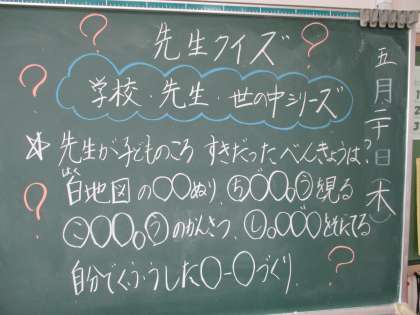 先生クイズ
学校・先生・世の中シリーズ
五月二十日（木）
☆先生が子どものころ すきだったべんきょうは？
白地図の○○ぬり、ち○○。うを見る
こ○○。うのかんさつ、し。○○○をそだてる
自分でくふうした○ー○づくり